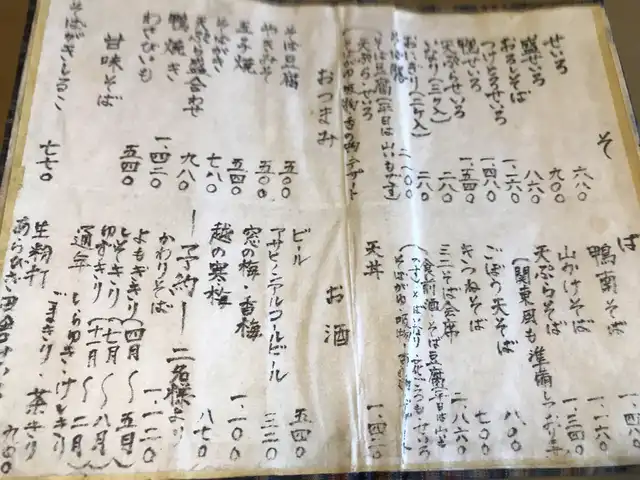 そば
せいろ 六八〇
盛せいろ 九〇〇
おろしそば 八六〇
つけとろせいろ 一、一六〇
鴨せいろ 一、四八〇
天ぷらせいろ 一、五四〇
いなり(三ヶ入) 二八〇
おにぎり(二ヶ入) 二八〇
二、一〇〇
そば豆腐(平日は
天ぷら せいろ
香の物 デザート
おつまみ
そば豆腐 五〇〇
やきみそ 五〇〇
玉子焼 五四〇
そばがき 七八〇
天ぷら盛合わせ 九八〇
鴨焼き 一、四二〇
わさびいも 五四〇
甘味そば
そばがきしるこ 七七〇
鴨南そば
山かけそば 一、一六〇
天ぷらそば 一、三四〇
(関東風も準備
ごぼう天そば 八〇〇
きつねそば 七〇〇
ミニそば会席 一、八六〇
(食前酒 そば豆腐(平日は
天丼 一、四二〇
お酒
ビール 五四〇
アサヒノンアルコールビール 三二〇
窓の梅・香梅 一、一〇〇
越の寒梅 八七〇
ー予約ー 二名様より
かわりそば 一、一二〇
よもぎきり(四月〜五月)
しそきり(七月〜八月)
ゆずきり(十一月〜二月)
通年 しらゆき・けしきり
ごまきり・茶きり
生粉打
あらびき田舎せいろ 九〇〇